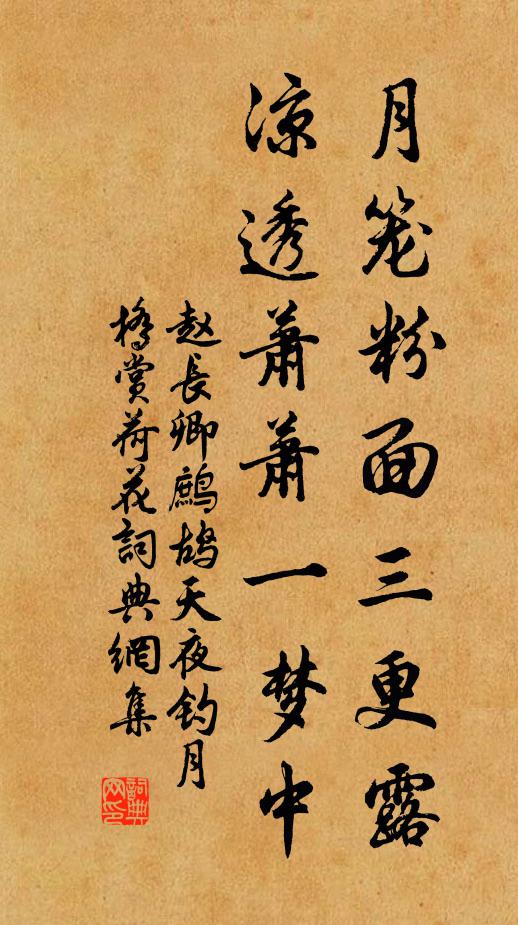 月笼粉面三更露
凉透萧萧一梦中
赵长卿鹧鸪天夜钓月
桥赏荷花词典网集
詞典网印